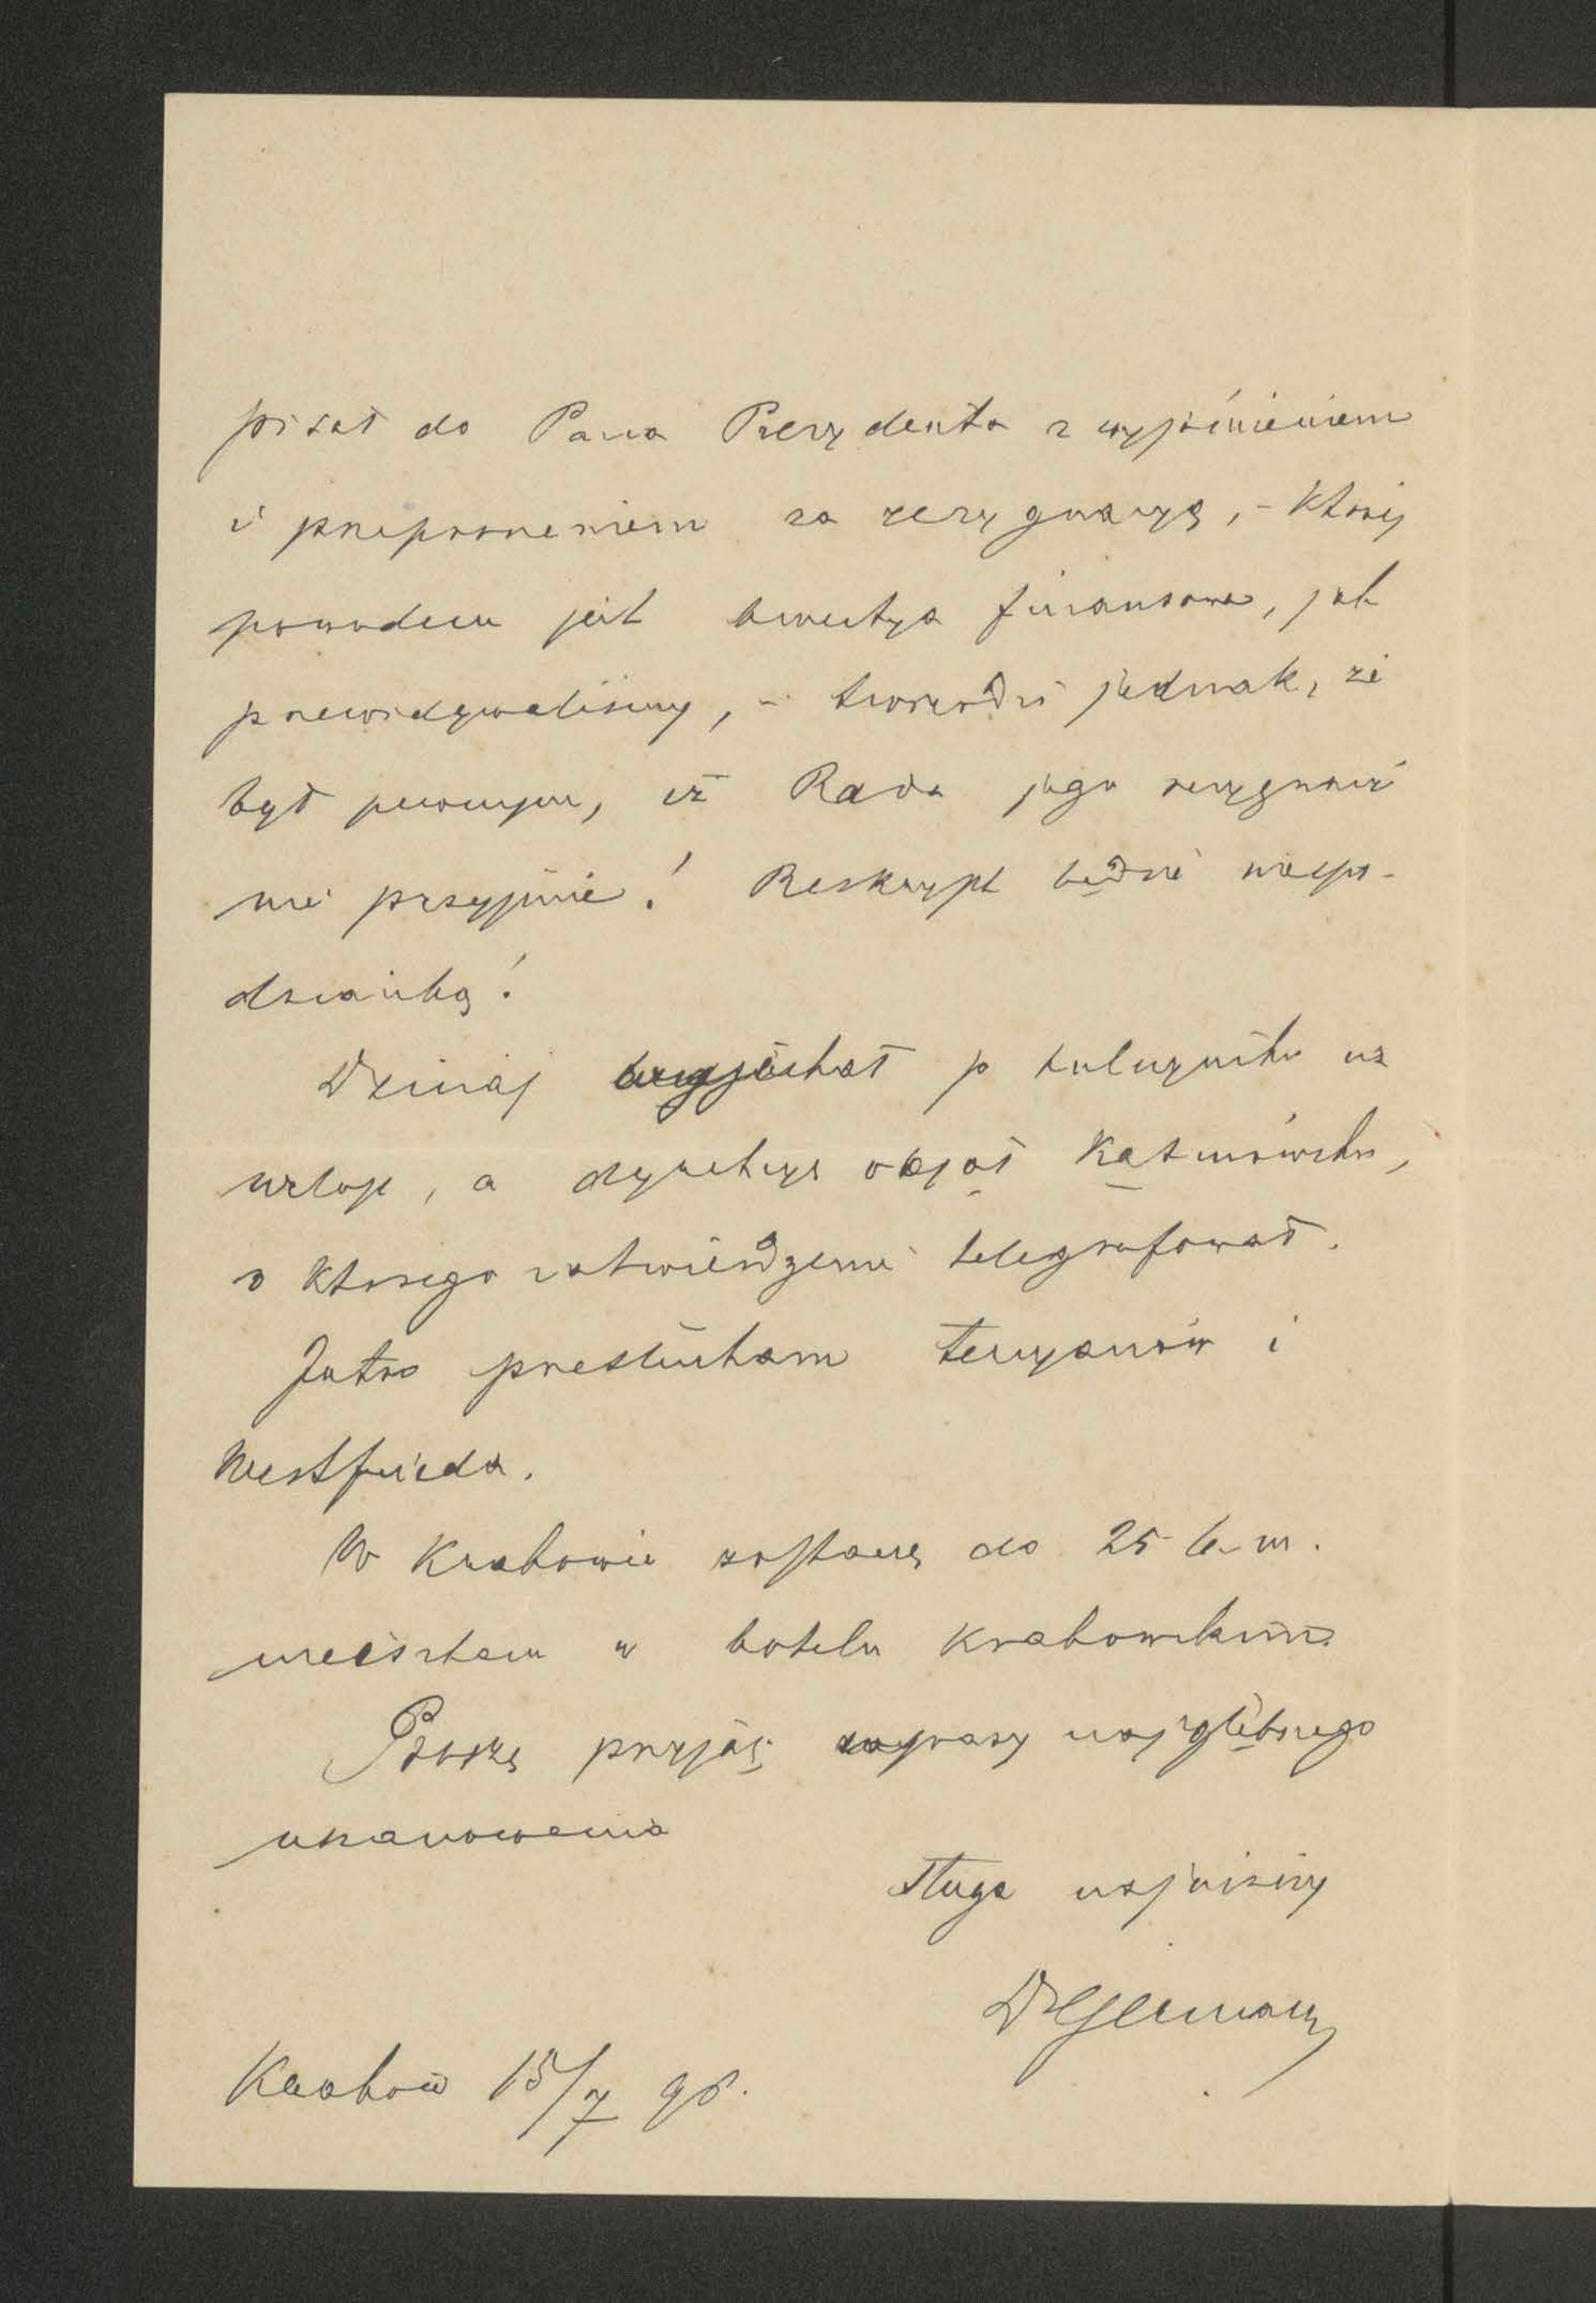 pisał do Pana Prezydenta z wyjaśnieniem
i przeproszeniem za rezygnacyą, – której
powodem jest kwestya finansowa, jak
przewidywaliśmy, – twierdzi jednak, że
był pewnym, iż Rada jego rezygnacyi
nie przyjmie! Reskrypt będzie niespo-
dzianką!
Dzisiaj wyjechał p. na
urlop, a dyrekcyę objął
o którego zatwierdzenie telegrafował.
Jutro przesłucham i
Westfrieda.
W Krakowie zostanę do 25 b. m.
mieszkam w hotelu krakowskim.
Proszę przyjąć wyrazy najgłębszego
uszanowania
sługa najniższy
DrGerman
Kraków 15/7 98.